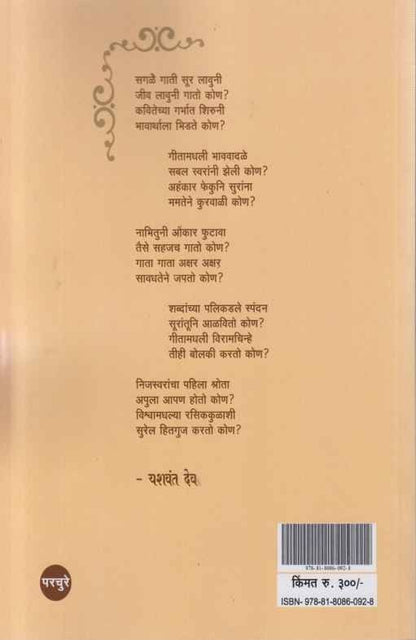 सगळे गाती सूर लावुनी
जीव लावुनी गातो कोण?
कवितेच्या गर्भात शिरुनी
भावार्थाला भिडते कोण?
गीतामधली भाववादळे
सबल स्वरांनी झेली कोण?
अहंकार फेकुनि सुरांना
ममतेने कुरवाळी कोण?
नाभितुनी ओंकार फुटावा
तैसे सहजच गातो कोण?
गाता गाता अक्षर अक्षर
सावधतेने जपतो कोण?
शब्दांच्या पलिकडले स्पंदन
सूरांतूनि आळवितो कोण?
गीतामधली विरामचिन्हे
तीही बोलकी करतो कोण?
निजस्वरांचा पहिला श्रोता
अपुला आपण होतो कोण?
विश्वामधल्या रसिककुळाशी
सुरेल हितगुज करतो कोण?
- यशवंत देव
परचुरे
978-81-8086-092-8
किंमत रु. ३००/-
ISBN- 978-81-8086-092-8